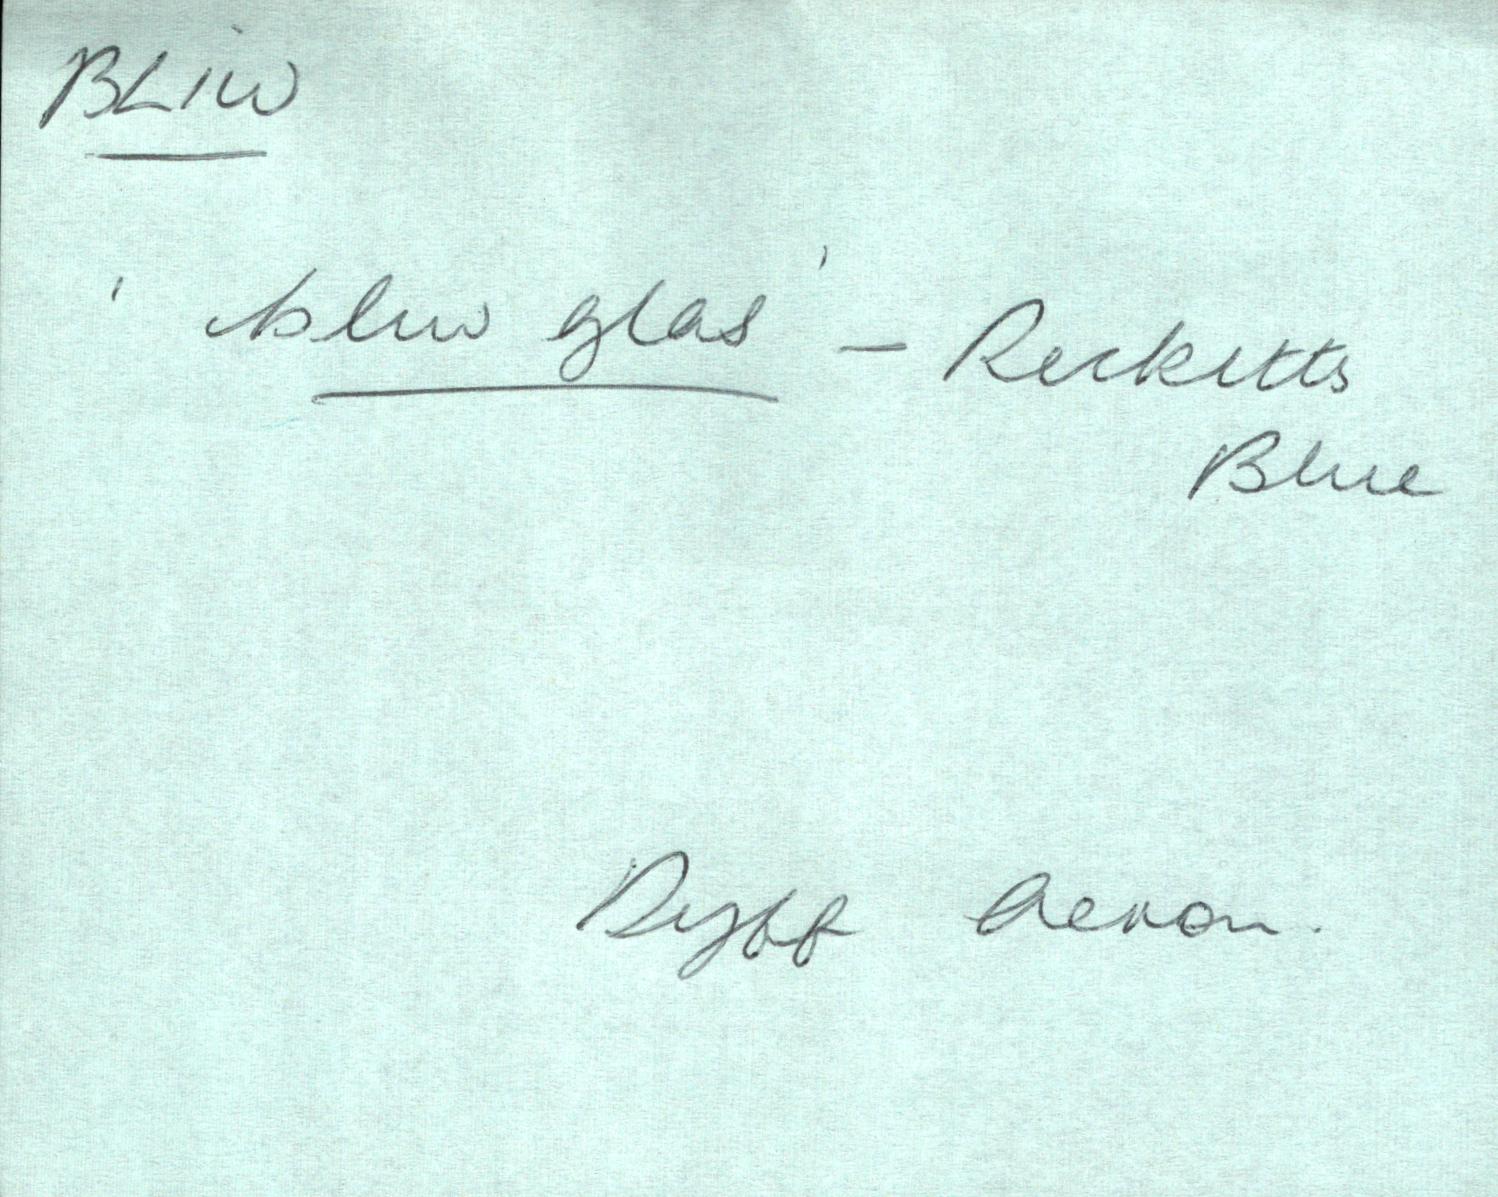 BLIW
' bliw glas ' – Recketts
Blue
Dyff Aeron.